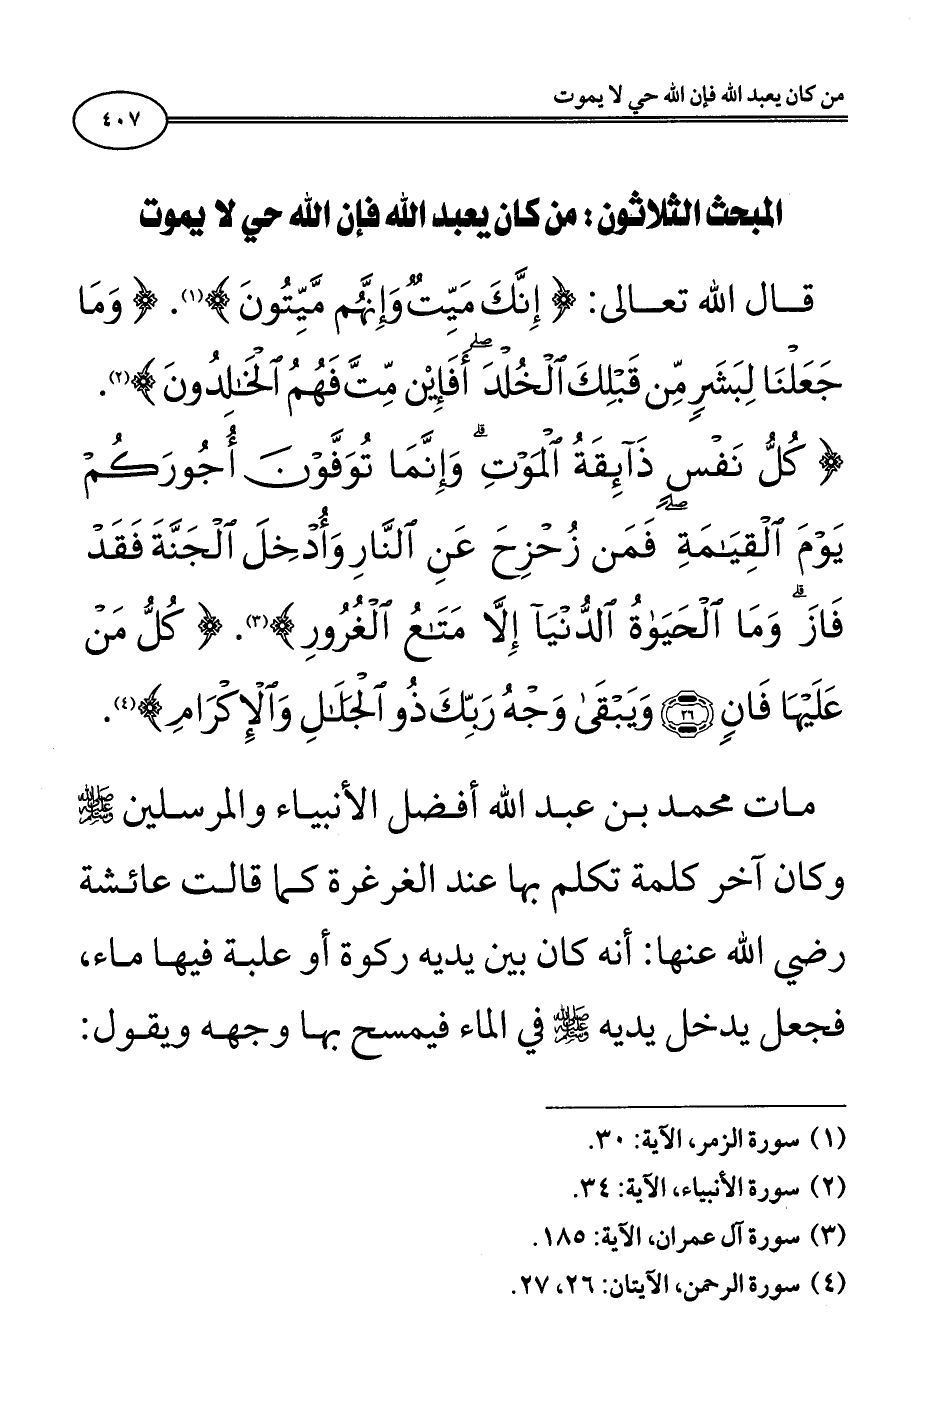 من كان يعبد الله فإن الله حي لا يموت
٤٠٧
المبحث الثلاثون: من كان يعبد الله فإن الله حي لا يموت
قال الله تعالى: ﴿ إِنَّكَ مَيِّتٌ وَإِنَّهُم مَّيِّتُونَ ﴾(١). ﴿ وَمَا
جَعَلْنَا لِبَشَرٍ مِّن قَبْلِكَ ٱلْخُلْدَ ۖ أَفَإِيْن مِّتَّ فَهُمُ ٱلْخَـٰلِدُونَ ﴾(٢).
﴿ كُلُّ نَفْسٍ ذَآئِقَةُ ٱلْمَوْتِ ۗ وَإِنَّمَا تُوَفَّوْنَ أُجُورَكُمْ
يَوْمَ ٱلْقِيَـٰمَةِ ۖ فَمَن زُحْزِحَ عَنِ ٱلنَّارِ وَأُدْخِلَ ٱلْجَنَّةَ فَقَدْ
فَازَ ۗ وَمَا ٱلْحَيَوٰةُ ٱلدُّنْيَآ إِلَّا مَتَـٰعُ ٱلْغُرُورِ ﴾(٣). ﴿ كُلُّ مَنْ
عَلَيْهَا فَانٍ ۝٢٦ وَيَبْقَىٰ وَجْهُ رَبِّكَ ذُو ٱلْجَلَـٰلِ وَٱلْإِكْرَامِ ﴾(٤).
مات محمد بن عبد الله أفضل الأنبياء والمرسلين ﷺ
وكان آخر كلمة تكلم بها عند الغرغرة كما قالت عائشة
رضي الله عنها: أنه كان بين يديه ركوة أو علبة فيها ماء،
فجعل يدخل يديه ﷺ في الماء فيمسح بها وجهه ويقول:
(١) سورة الزمر، الآية: ٣٠.
(٢) سورة الأنبياء، الآية: ٣٤.
(٣) سورة آل عمران، الآية: ١٨٥.
(٤) سورة الرحمن، الآيتان: ٢٦، ٢٧.